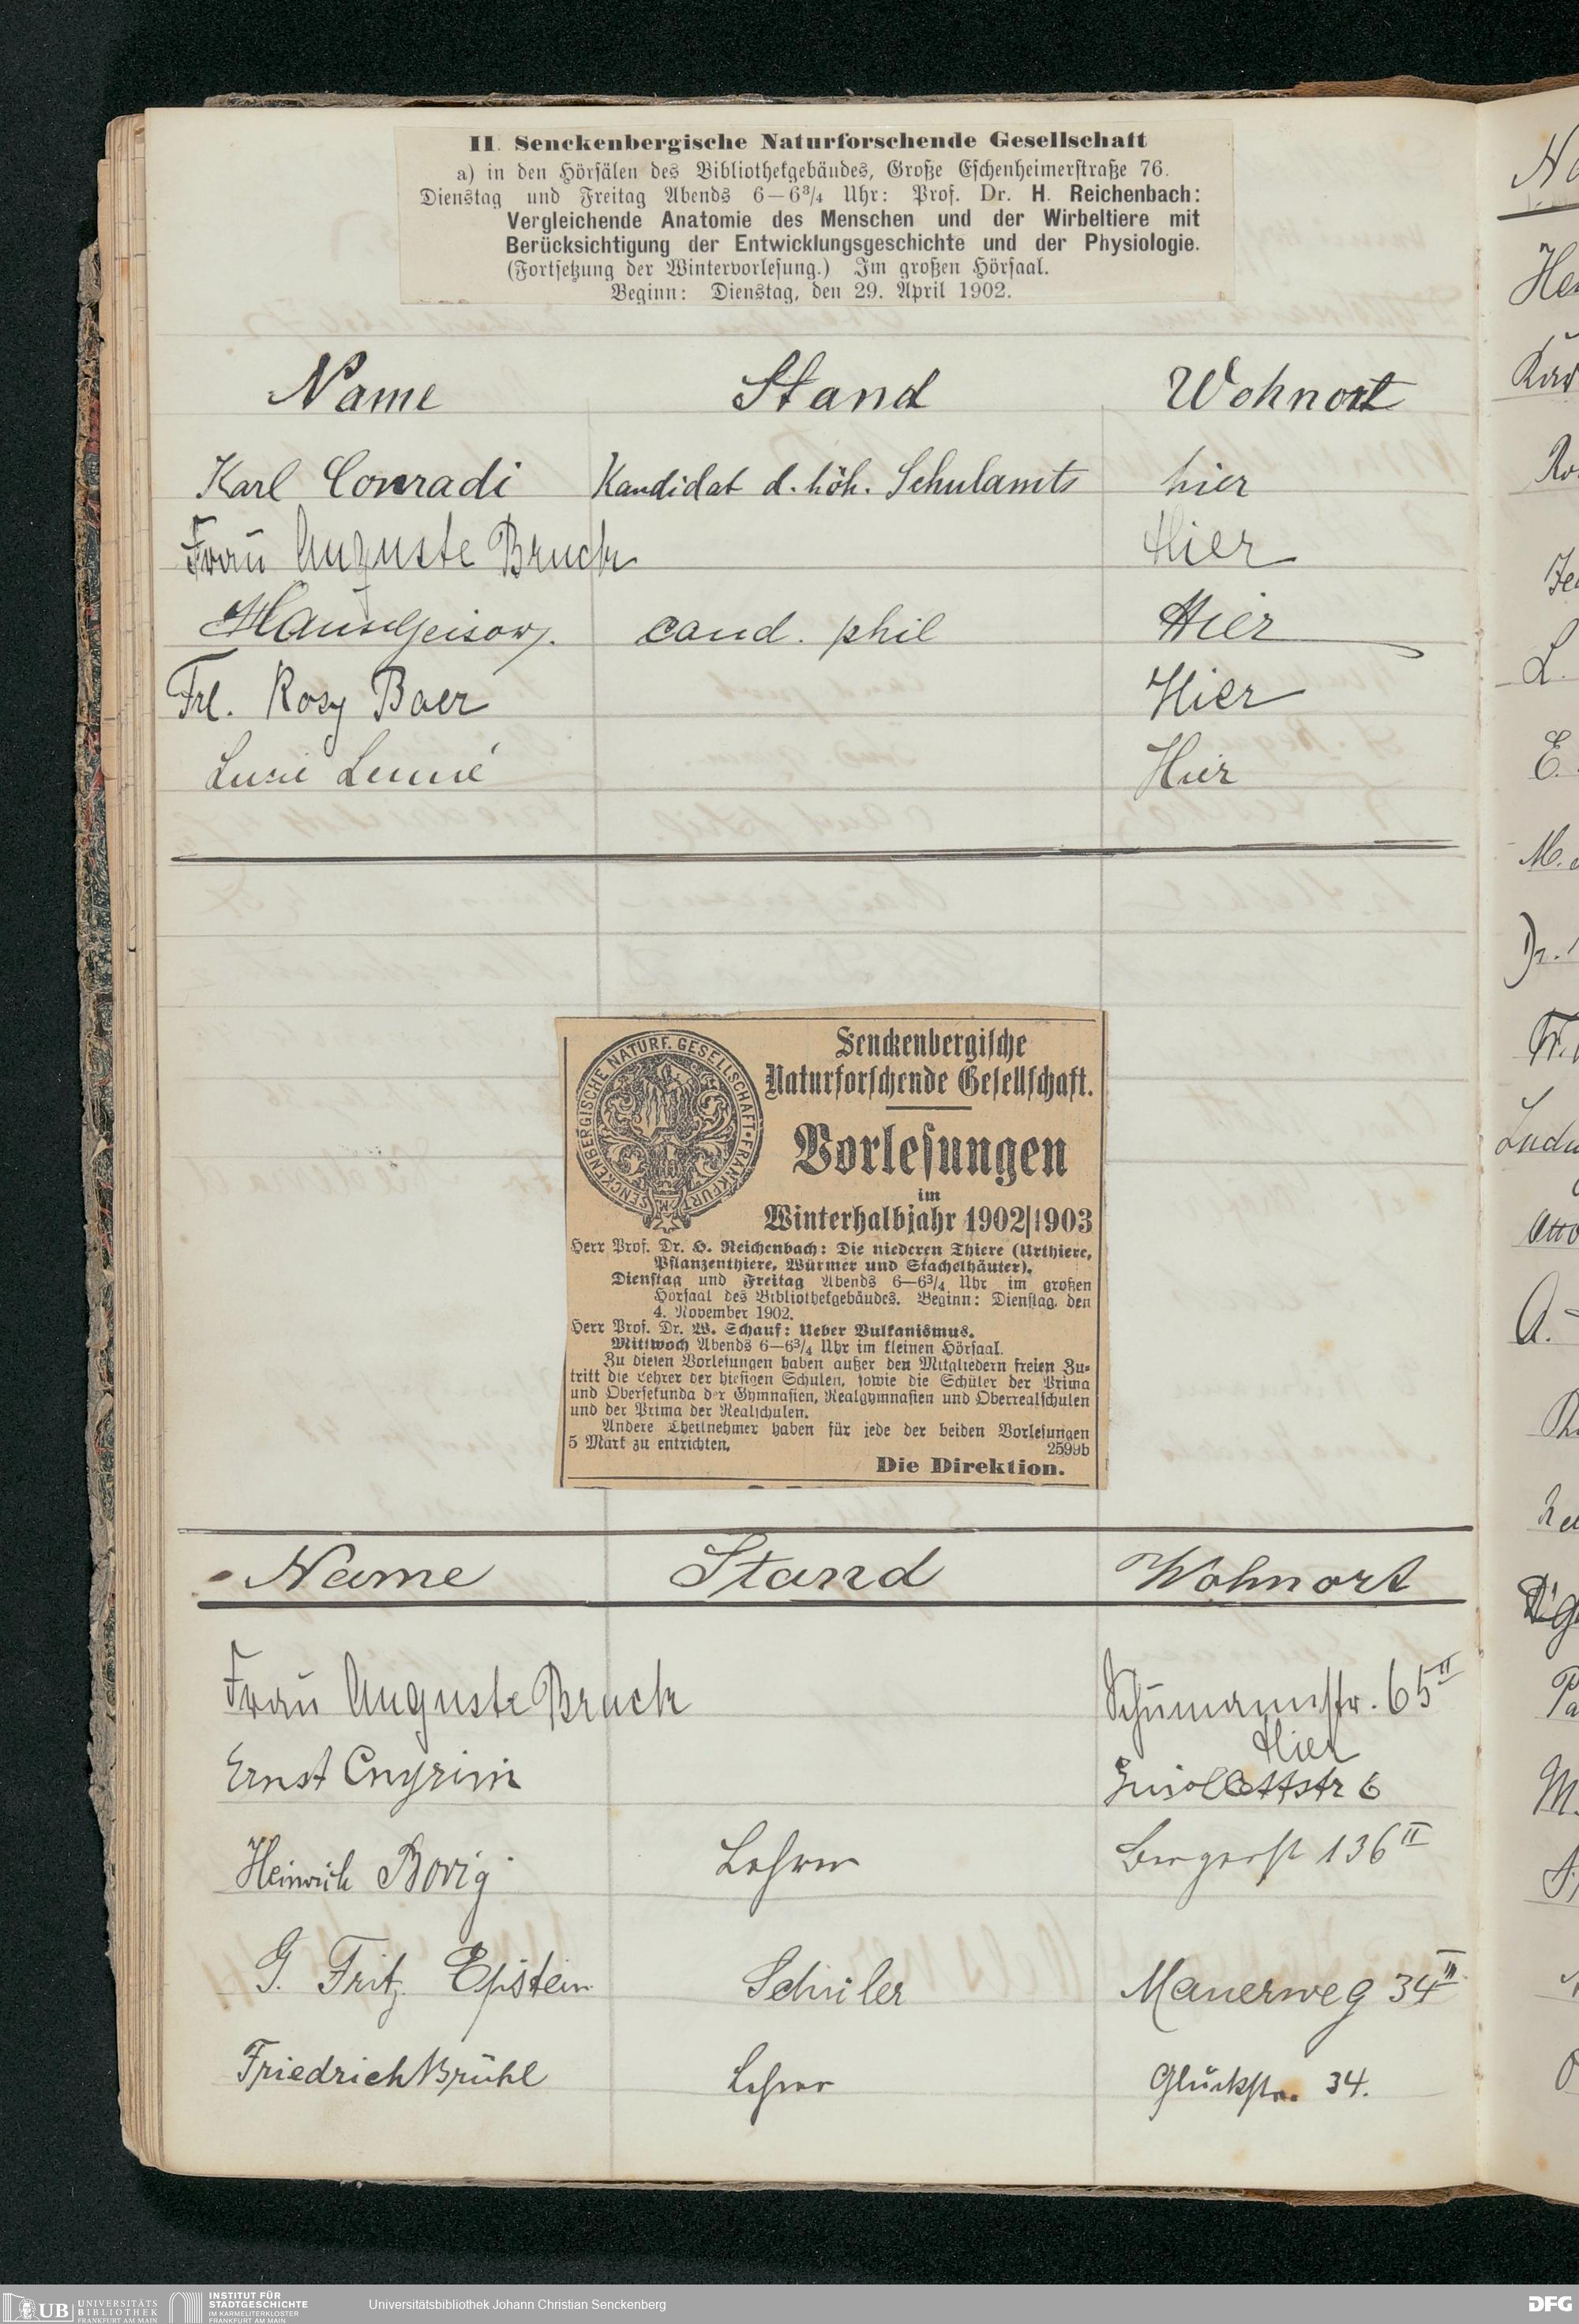 II. Senckenbergische Naturforschende Gesellschaft
a) in den Hörsälen des Bibliothekgebäudes, Große Eschenheimerstraße 76.
Dienstag und Freitag Abends 6—6¾ Uhr: Prof. Dr. H. Reichenbach:
Vergleichende Anatomie des Menschen und der Wirbeltiere mit
Berücksichtigung der Entwicklungsgeschichte und der Physiologie.
(Fortsetzung der Wintervorlesung.) Im großen Hörsaal.
Beginn: Dienstag, den 29. April 1902.
Name Stand Wohnort
Karl Conradi Kandidat d. höh. Schulamts hier
Frau Auguste Bruck Hier
Hans Geisow. cand. phil Hier
Frl. Rosy Baer Hier
Hier
SENCKENBERGISCHE NATURF. GESELLSCHAFT · FRANKFURT A/M
Senckenbergische
Naturforschende Gesellschaft.
Vorlesungen
im
Winterhalbjahr 1902/1903
Herr Prof. Dr. H. Reichenbach: Die niederen Thiere (Urthiere,
Pflanzenthiere, Würmer und Stachelhäuter).
Dienstag und Freitag Abends 6—6¾ Uhr im großen
Hörsaal des Bibliothekgebäudes. Beginn: Dienstag, den
4. November 1902.
Herr Prof. Dr. W. Schauf: Ueber Vulkanismus.
Mittwoch Abends 6—6¾ Uhr im kleinen Hörsaal.
Zu diesen Vorlesungen haben außer den Mitgliedern freien Zu-
tritt die Lehrer der hiesigen Schulen, sowie die Schüler der Prima
und Obersekunda der Gymnasien, Realgymnasien und Oberrealschulen
und der Prima der Realschulen.
Andere Theilnehmer haben für jede der beiden Vorlesungen
5 Mark zu entrichten. 2599b
Die Direktion.
Name Stand Wohnort
Frau Auguste Bruck Schumannstr. 65 II
Hier
Ernst Cnyrim Guiollettstr 6
Heinrich Bovig Lehrer Bergerstr 136 II
G. Fritz Epstein Schüler Mauerweg 34 II
Friedrich Brühl Lehrer Glückstr. 34.
UB UNIVERSITÄTS
BIBLIOTHEK
FRANKFURT AM MAIN
INSTITUT FÜR
STADTGESCHICHTE
IM KARMELITERKLOSTER
FRANKFURT AM MAIN
Universitätsbibliothek Johann Christian Senckenberg
DFG